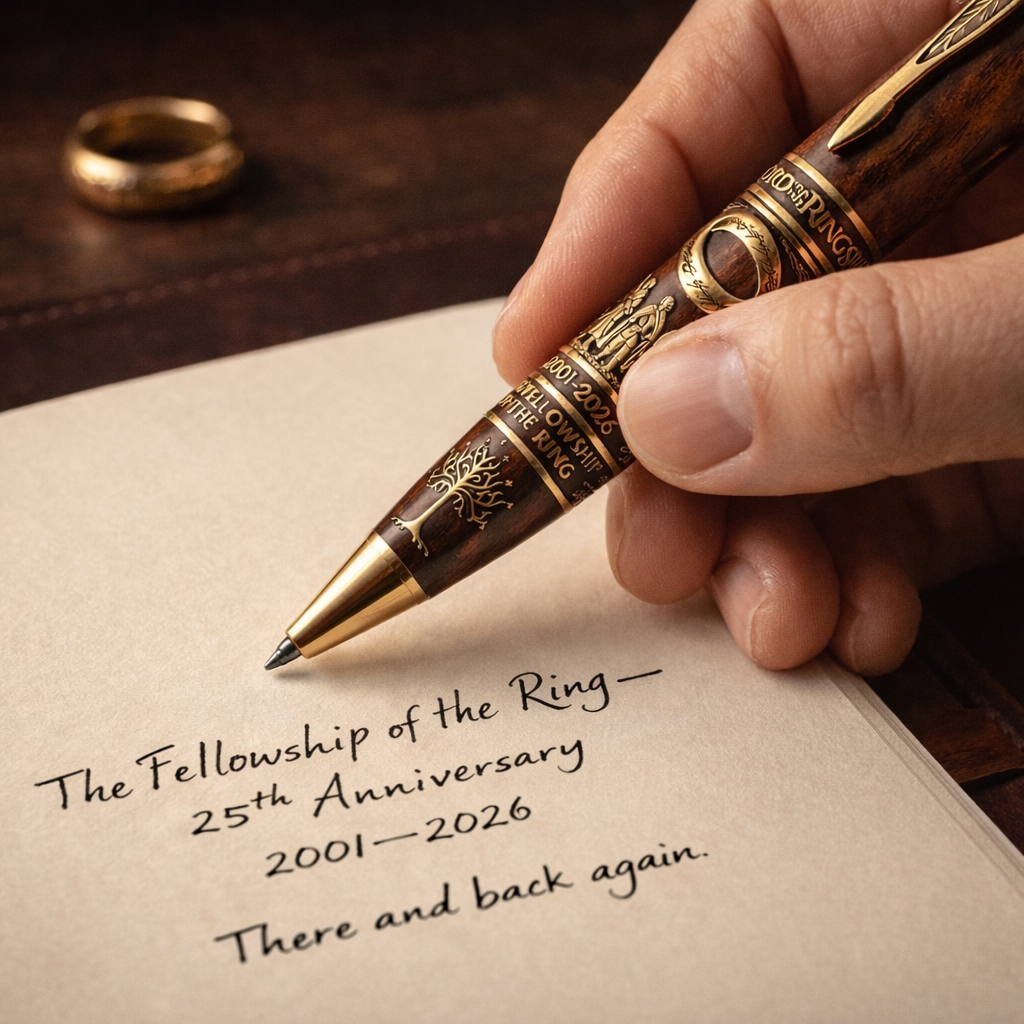 LORD OF THE RINGS
2001-2026
FELLOWSHIP
OF THE RING
The Fellowship of the Ring—
25th Anniversary
2001—2026
There and back again.